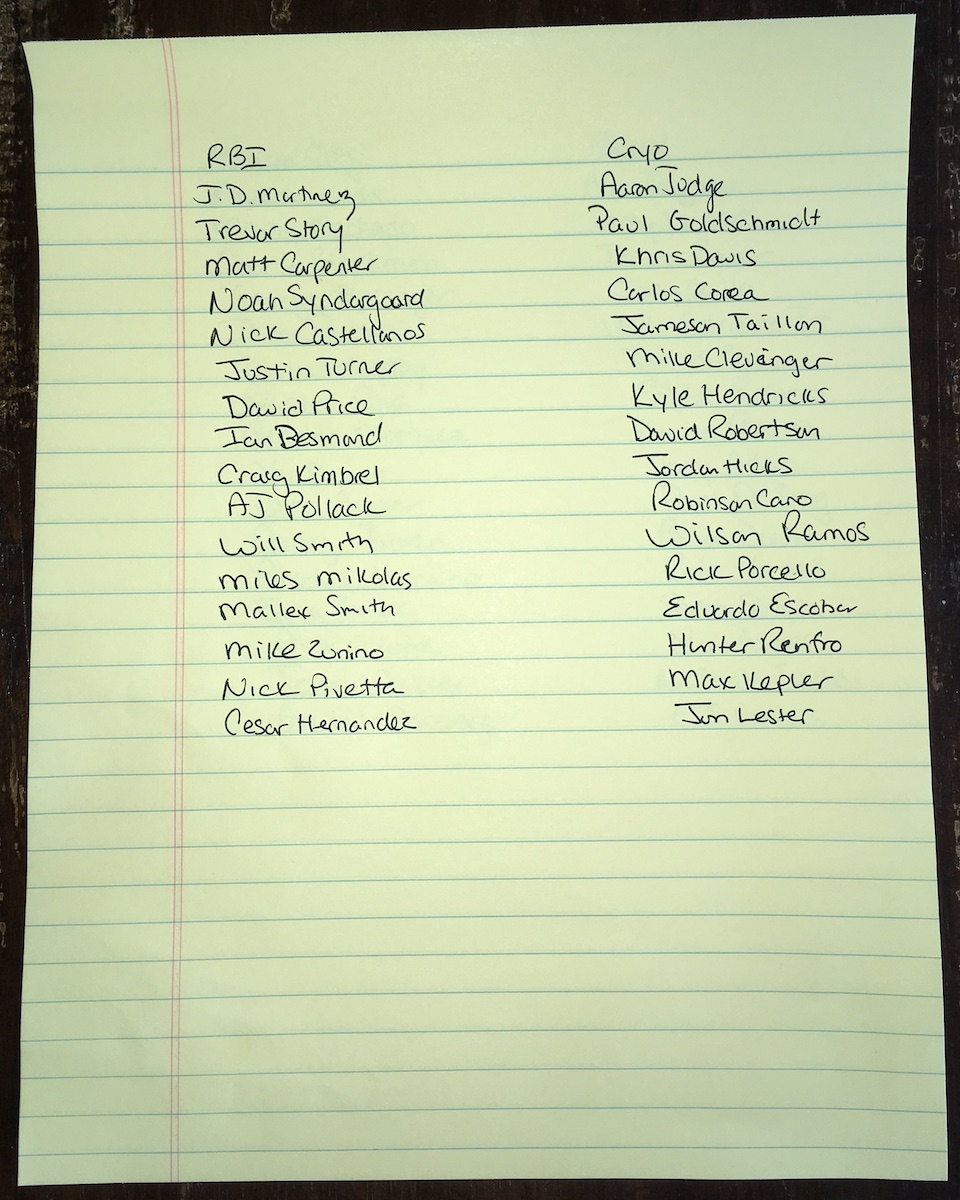 RBI Cryo
J.D. Martinez Aaron Judge
Trevor Story Paul Goldschmidt
Matt Carpenter Khris Davis
Noah Syndargaard Carlos Corea
Nick Castellanos Jameson Taillon
Justin Turner Mike Clevinger
David Price Kyle Hendricks
Ian Desmond David Robertson
Craig Kimbrel Jordan Hicks
AJ Pollack Robinson Cano
Will Smith Wilson Ramos
Miles Mikolas Rick Porcello
Mallex Smith Eduardo Escobar
Mike Zunino Hunter Renfro
Nick Pivetta Max Kepler
Cesar Hernandez Jon Lester